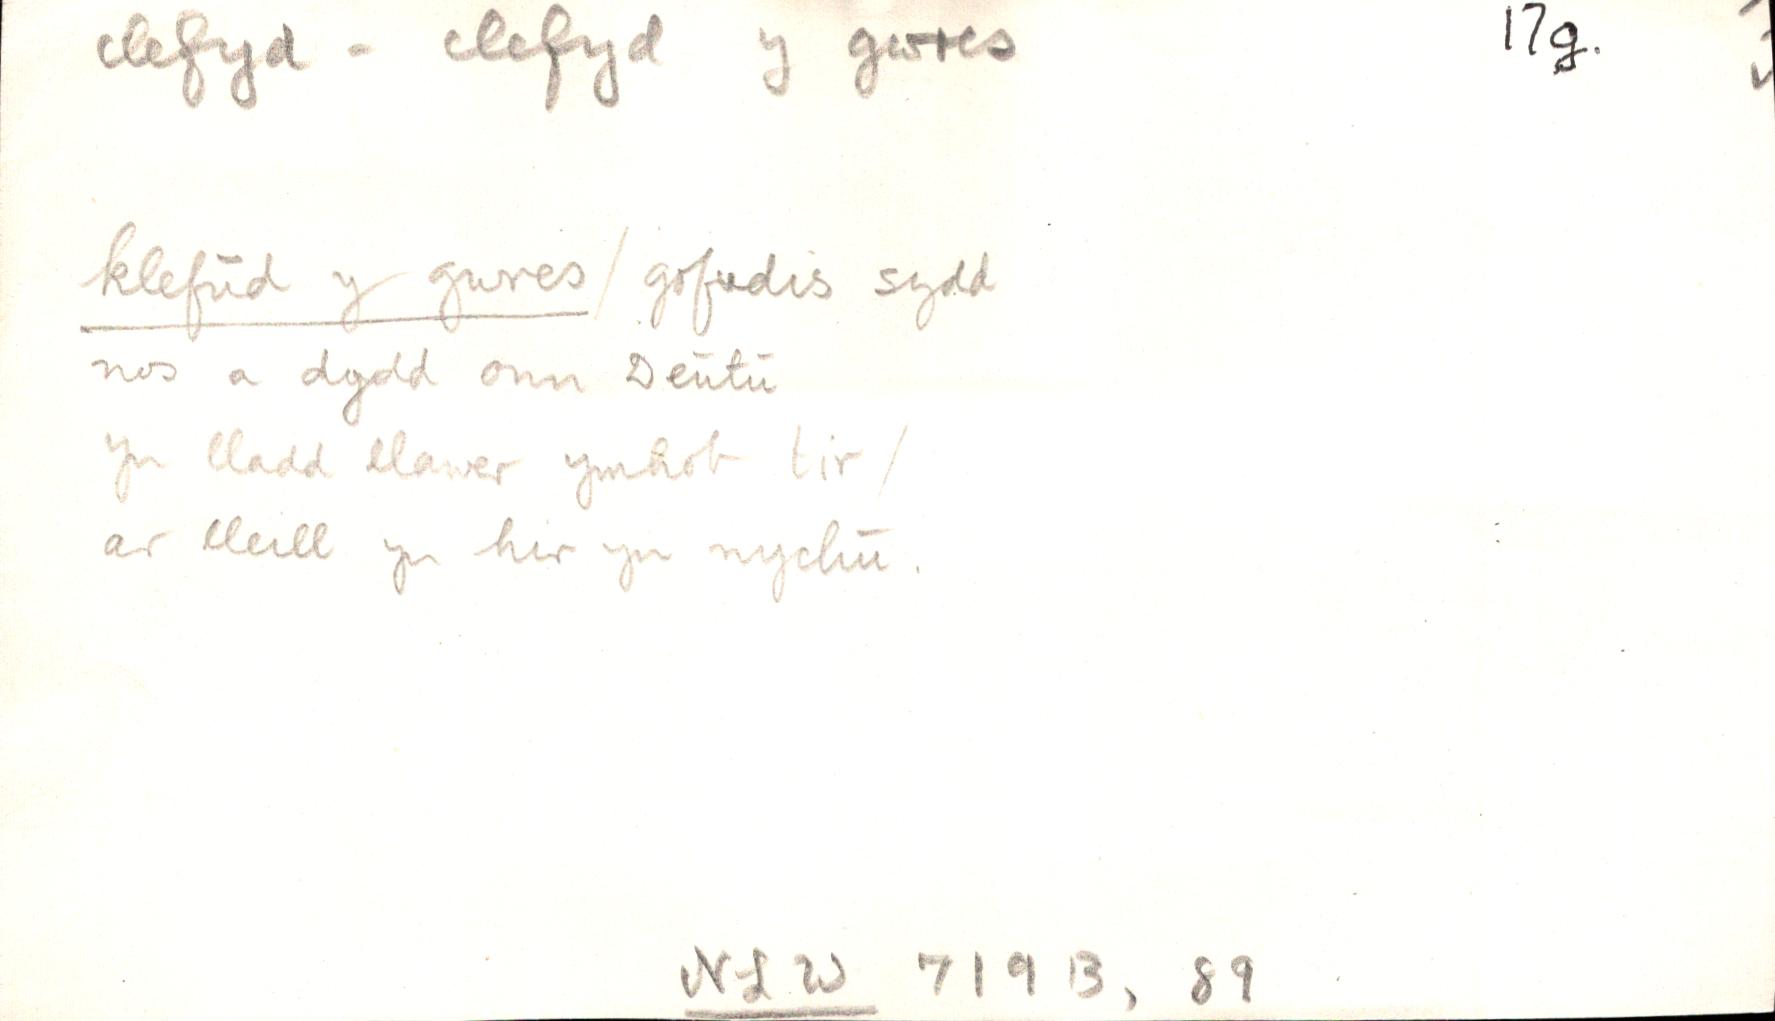 clefyd - clefyd y gwres 17g.
klefūd y gwres / gofudis sydd
nos a dydd onn Deūtū
yn lladd llawer ymhob tir /
ar lleill yn hir yn nychū.
NLW 719B, 89